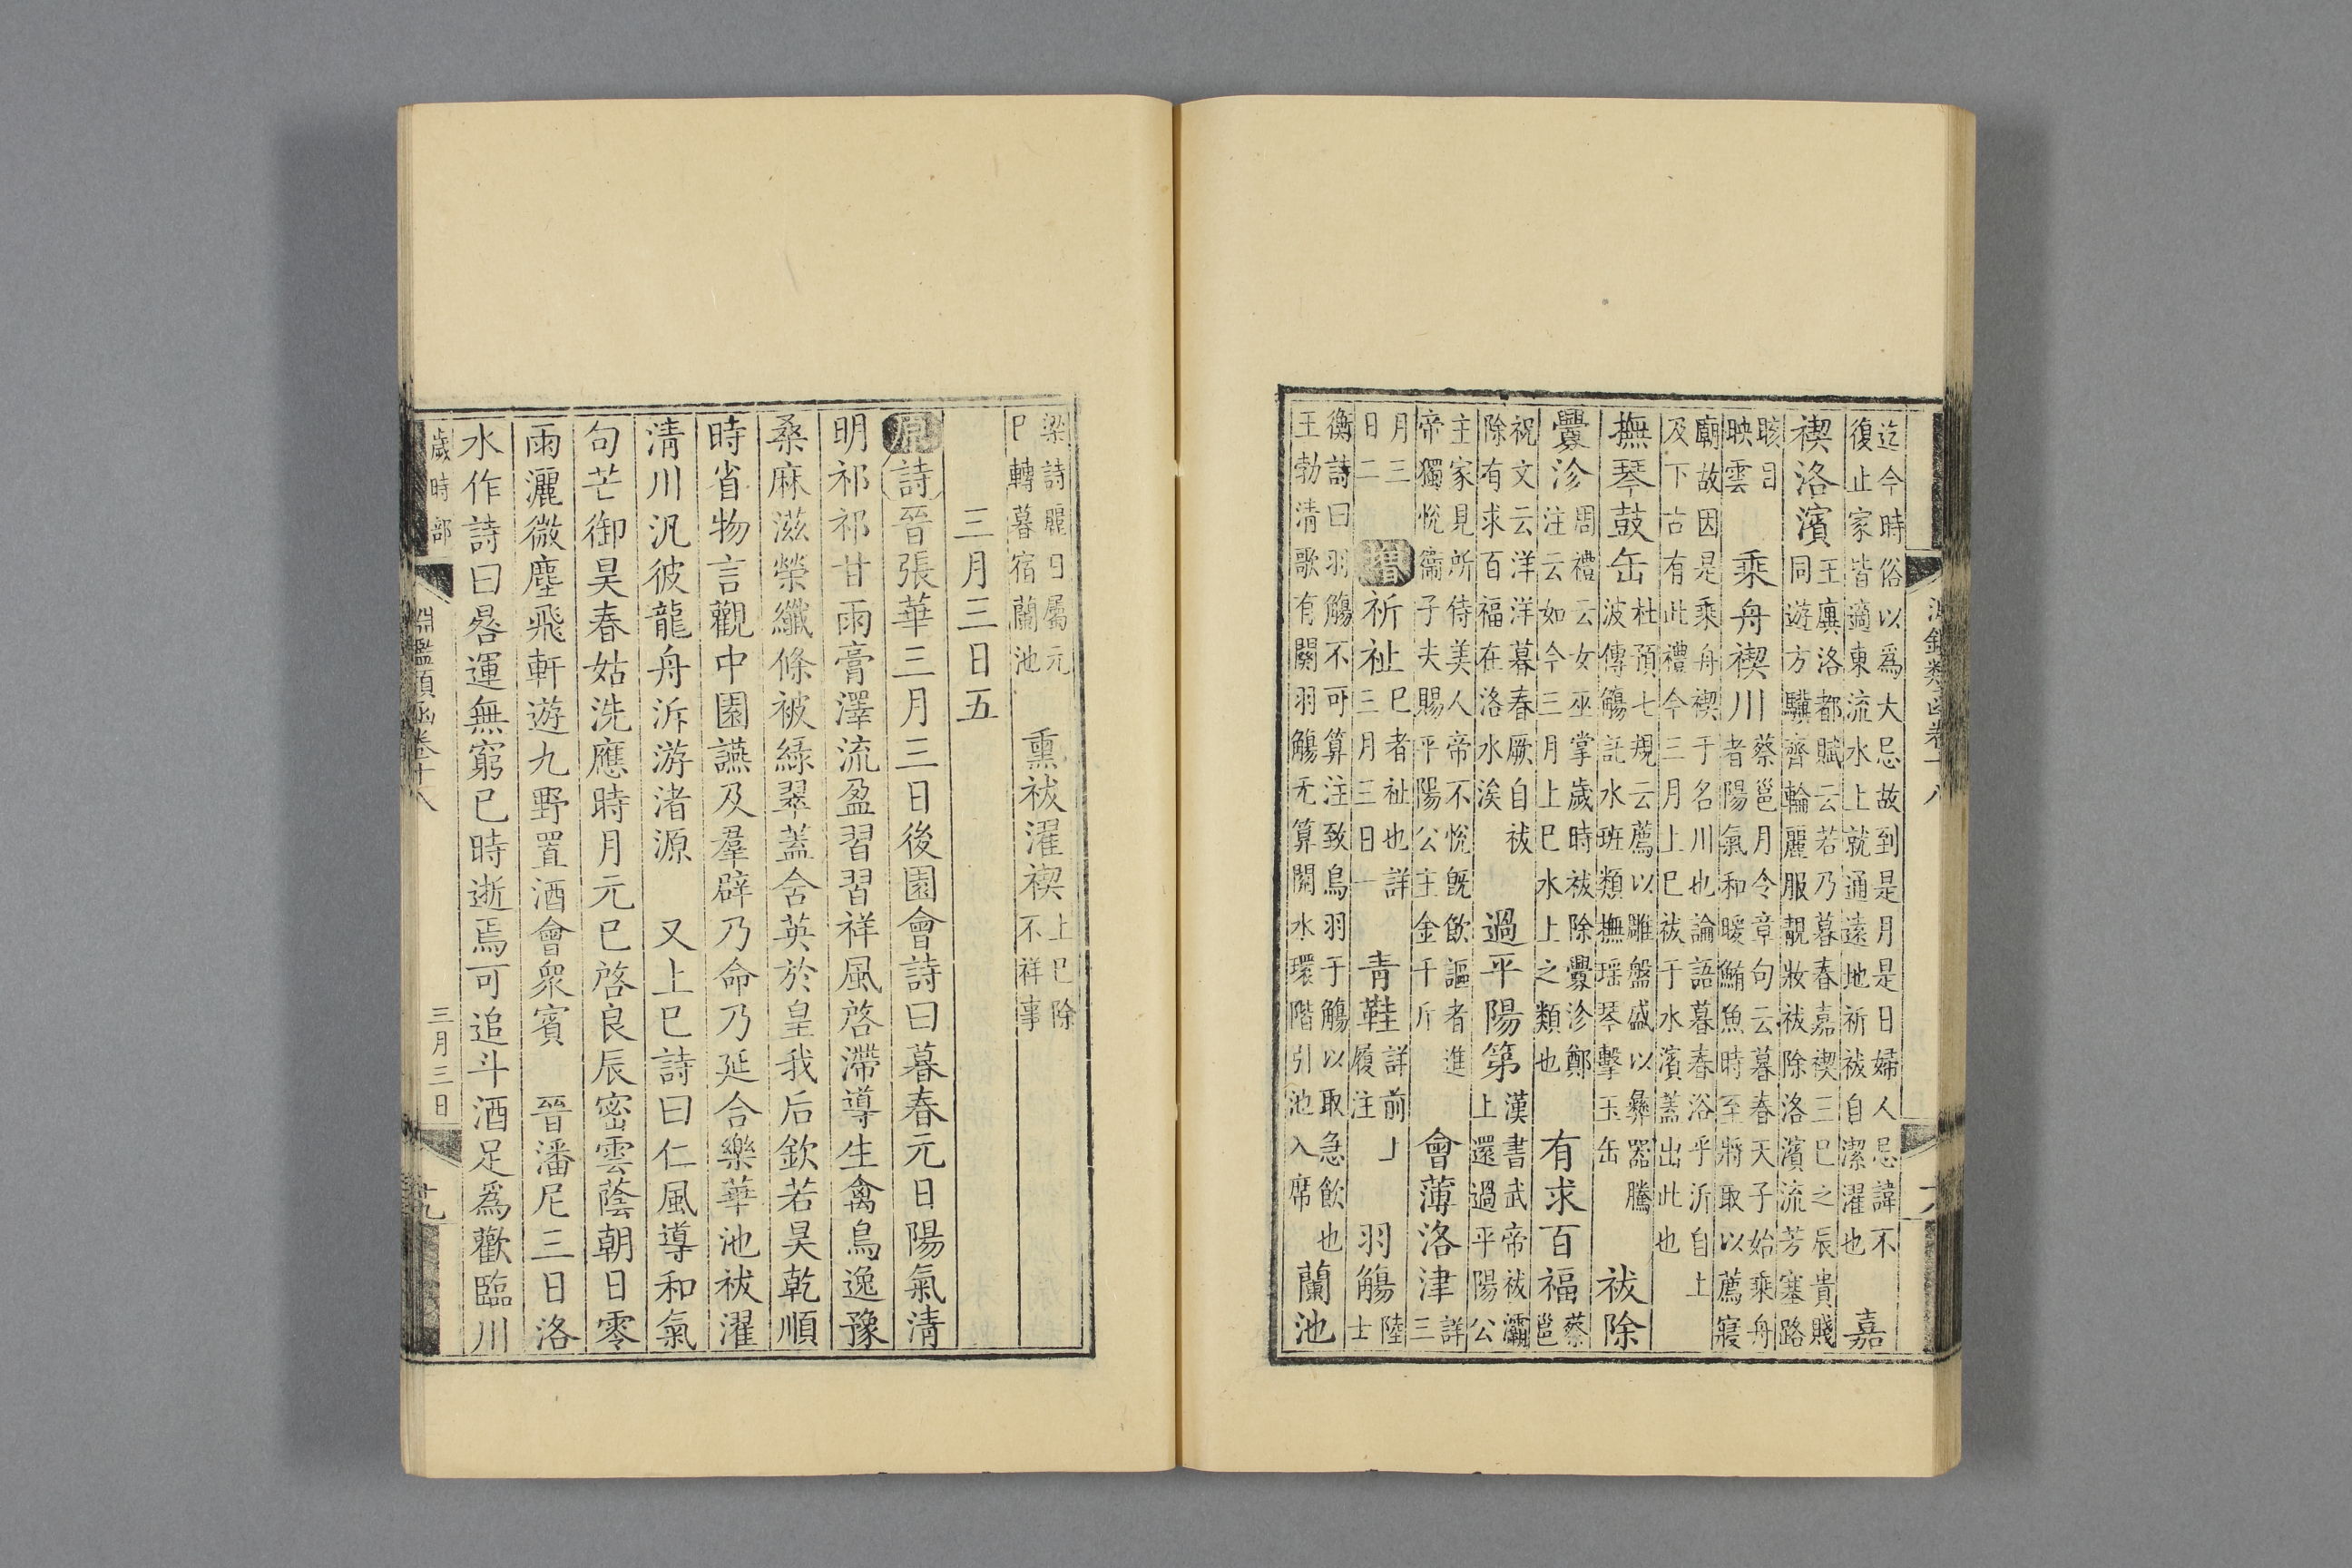 迄今時俗以爲大忌故到是月是日婦人忌諱不
復止家皆適東流水上就通遠地祈祓自潔濯也
嘉
禊洛濱
王廙洛都賦云若乃暮春嘉禊三巳之辰貴賤
同遊方驥齊輪麗服靚妝祓除洛濱流芳塞路
映雲
乘舟禊川
蔡邕月令章句云暮春天子始乘舟
者陽氣和暖鮪魚時至將取以薦寢
廟故因是乘舟禊于名川也論語暮春浴乎沂自上
及下古有此禮今三月上巳祓于水濱蓋出此也
撫琴鼓缶
杜預七規云薦以雕盤盛以彝器騰
波傳觴託水班類撫瑶琴擊玉缶
祓除
釁沴
周禮云女巫掌歲時祓除釁沴鄭
注云如今三月上巳水上之類也
有求百福
蔡
邕
祝文云洋洋暮春厥自祓
除有求百福在洛水涘
過平陽第
漢書武帝祓灞
上還過平陽公
主家見所侍美人帝不悅既飲謳者進
帝獨悅衞子夫賜平陽公主金千斤
會薄洛津
詳
三
月三
日二
增
祈祉
巳者祉也詳
三月三日一
青鞋
詳前
履注
羽觴
陸
士
衡詩曰羽觴不可算注致鳥羽于觴以取急飲也
王勃清歌有闋羽觴无算關水環階引池入席
蘭池
梁詩麗日屬元
巳轉暮宿蘭池
熏祓濯禊
上巳除
不祥事
三月三日五
原
詩晉張華三月三日後園會詩曰暮春元日陽氣淸
明祁祁甘雨膏澤流盈習習祥風啓滯導生禽鳥逸豫
桑麻滋榮纖條被綠翠蓋含英於皇我后欽若昊乾順
時省物言觀中園讌及羣辟乃命乃延合樂華池祓濯
清川汎彼龍舟泝游渚源　又上巳詩曰仁風導和氣
句芒御昊春姑洗應時月元巳啓良辰密雲蔭朝日零
雨灑微塵飛軒遊九野置酒會衆賓　晉潘尼三日洛
水作詩曰晷運無窮已時逝焉可追斗酒足爲歡臨川
歲時部
淵鑑類函卷十八
三月三日